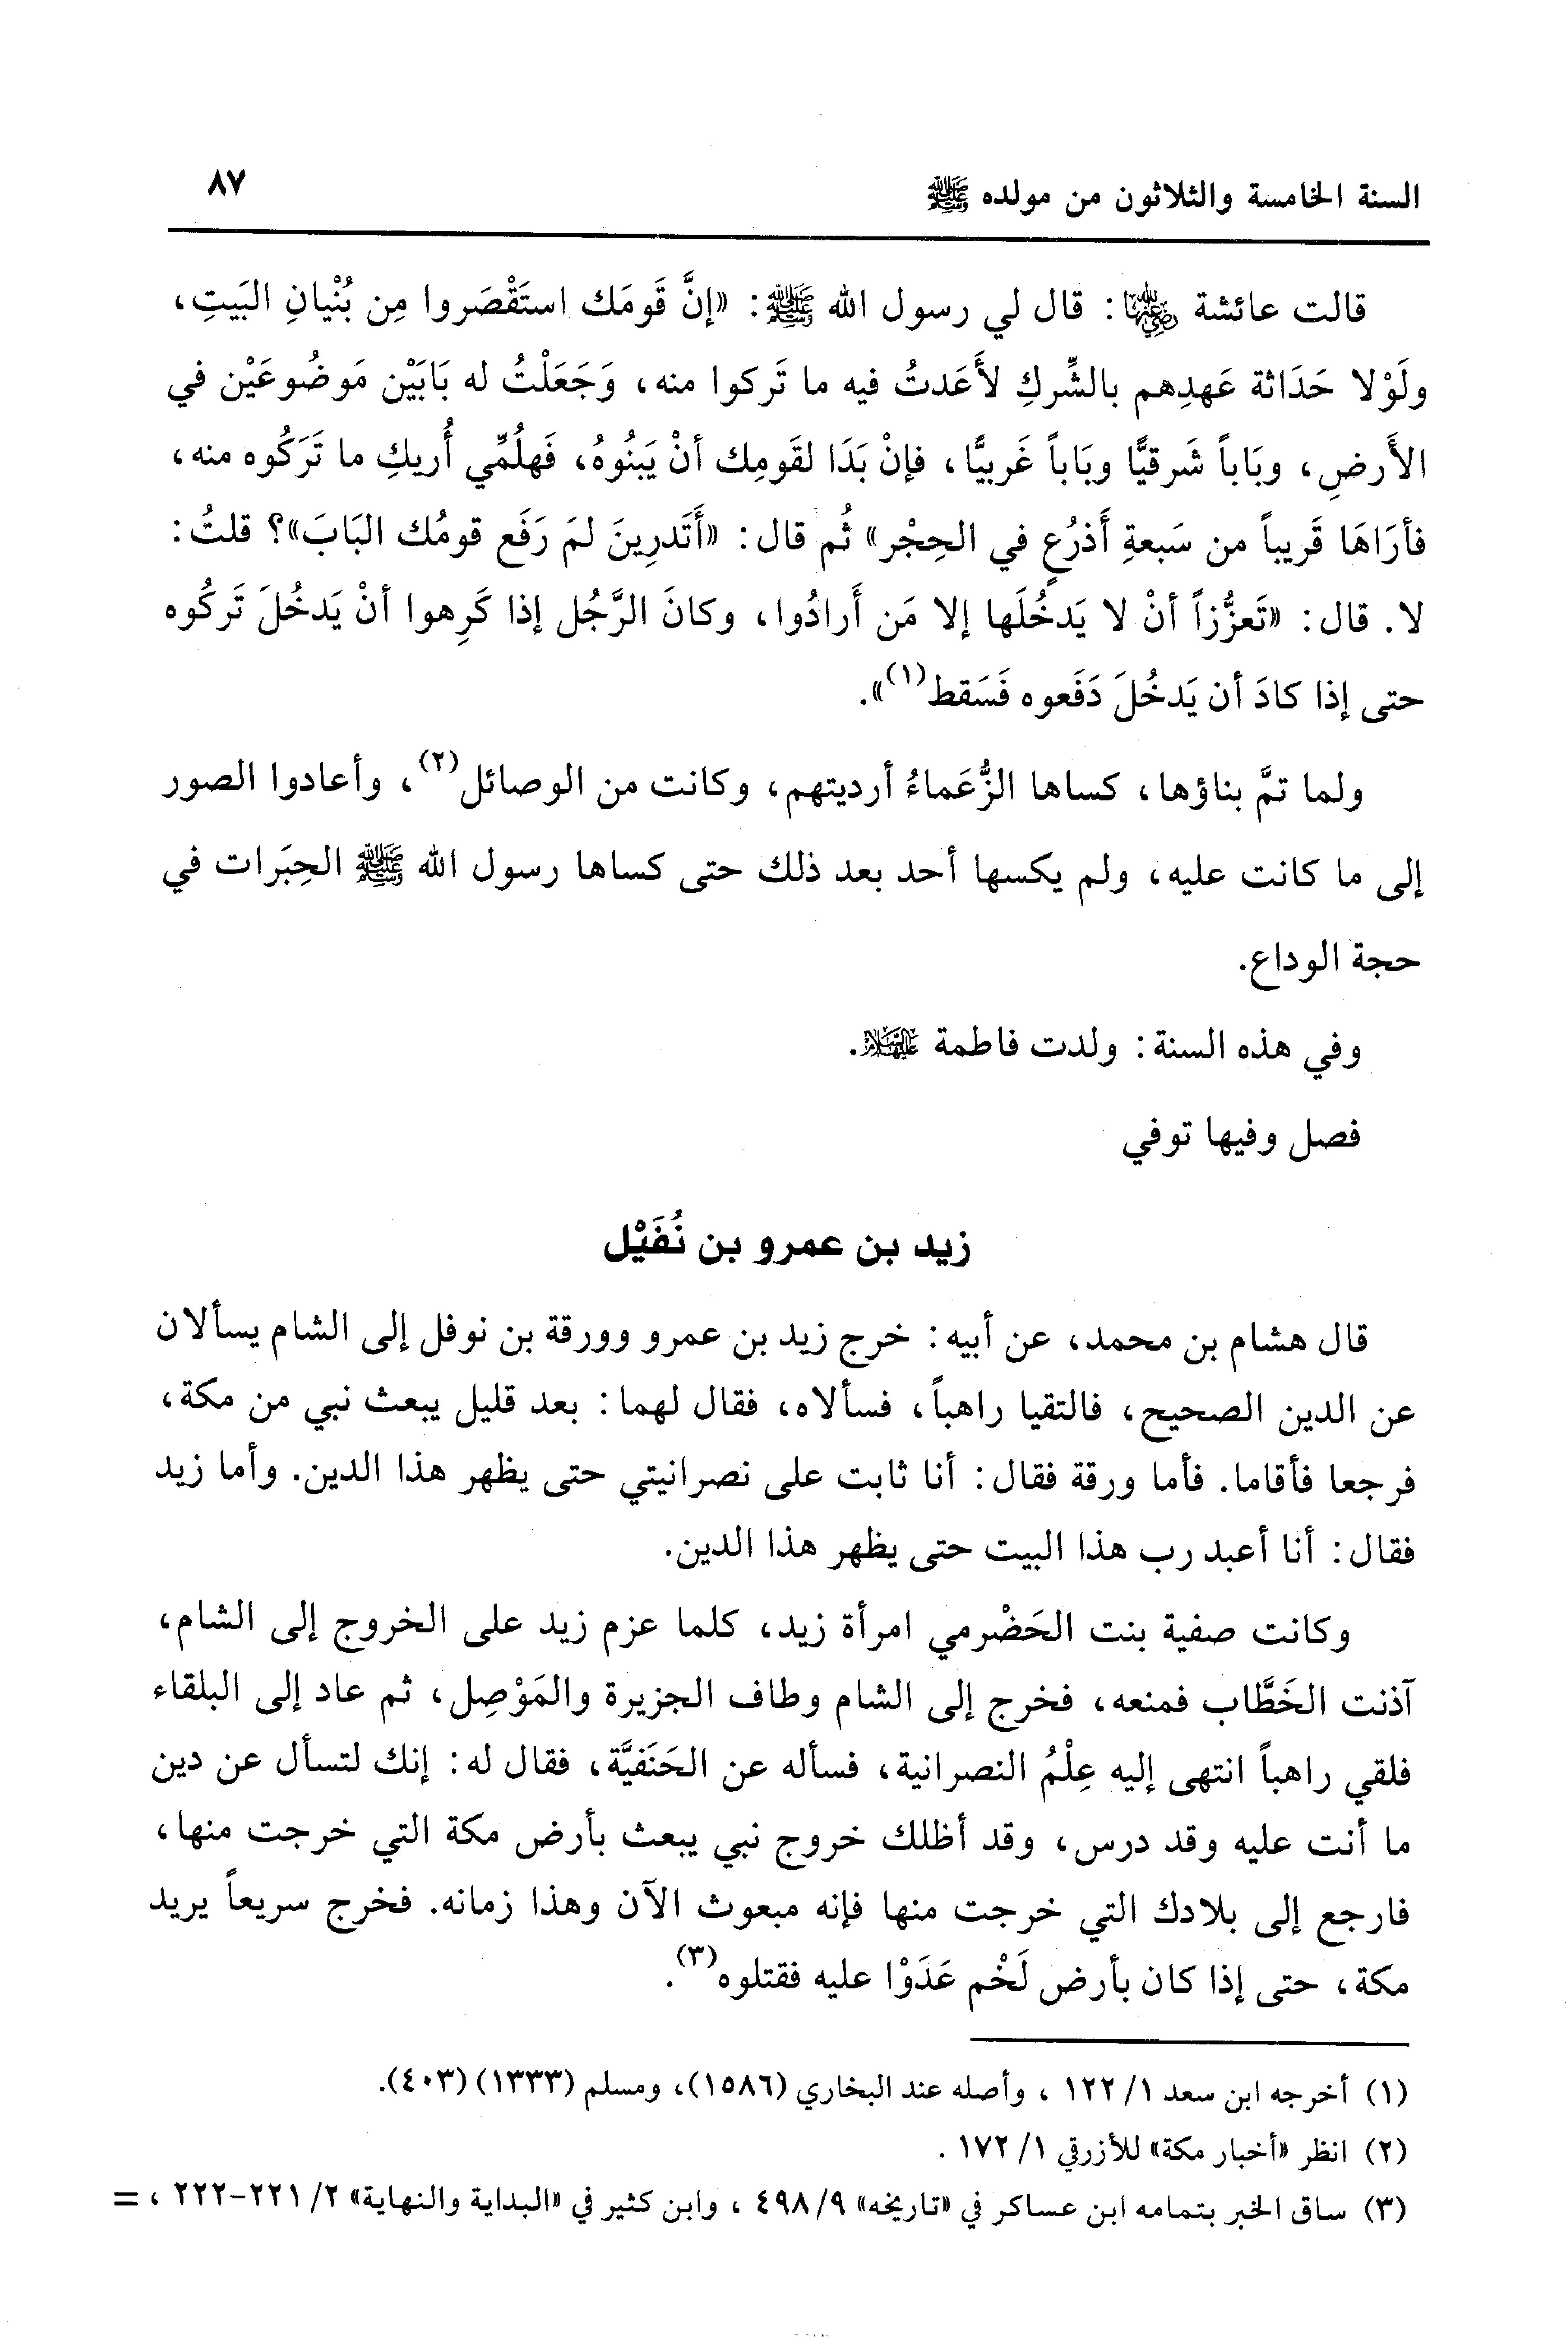 السنة الخامسة والثلاثون من مولده ﷺ ٨٧
قالت عائشة رضي الله عنها: قال لي رسول الله ﷺ: «إنَّ قَومَك استَقْصَروا مِن بُنْيانِ البَيتِ،
ولَوْلا حَدَاثة عَهدِهم بالشِّركِ لأَعَدتُ فيه ما تَركوا منه، وَجَعَلْتُ له بَابَيْن مَوضُوعَيْن في
الأَرضِ، وبَاباً شَرقيًّا وبَاباً غَربيًّا، فإنْ بَدَا لقَومِك أنْ يَبنُوهُ، فَهلُمِّي أُريكِ ما تَرَكُوه منه،
فأرَاهَا قَريباً من سَبعةِ أَذرُعٍ في الحِجْر» ثُم قال: «أَتَدرِينَ لمَ رَفَع قومُك البَابَ»؟ قلتُ:
لا. قال: «تَعزُّزاً أنْ لا يَدخُلَها إلا مَن أَرادُوا، وكانَ الرَّجُل إذا كَرِهوا أنْ يَدخُلَ تَركُوه
حتى إذا كادَ أن يَدخُلَ دَفَعوه فَسَقط(١)».
ولما تمَّ بناؤها، كساها الزُّعَماءُ أرديتهم، وكانت من الوصائل(٢)، وأعادوا الصور
إلى ما كانت عليه، ولم يكسها أحد بعد ذلك حتى كساها رسول الله ﷺ الحِبَرات في
حجة الوداع.
وفي هذه السنة: ولدت فاطمة عليها السلام.
فصل وفيها توفي
زيد بن عمرو بن نُفَيْل
قال هشام بن محمد، عن أبيه: خرج زيد بن عمرو وورقة بن نوفل إلى الشام يسألان
عن الدين الصحيح، فالتقيا راهباً، فسألاه، فقال لهما: بعد قليل يبعث نبي من مكة،
فرجعا فأقاما. فأما ورقة فقال: أنا ثابت على نصرانيتي حتى يظهر هذا الدين. وأما زيد
فقال: أنا أعبد رب هذا البيت حتى يظهر هذا الدين.
وكانت صفية بنت الحَضْرمي امرأة زيد، كلما عزم زيد على الخروج إلى الشام،
آذنت الخَطَّاب فمنعه، فخرج إلى الشام وطاف الجزيرة والمَوْصِل، ثم عاد إلى البلقاء
فلقي راهباً انتهى إليه عِلْمُ النصرانية، فسأله عن الحَنَفيَّة، فقال له: إنك لتسأل عن دين
ما أنت عليه وقد درس، وقد أظلك خروج نبي يبعث بأرض مكة التي خرجت منها،
فارجع إلى بلادك التي خرجت منها فإنه مبعوث الآن وهذا زمانه. فخرج سريعاً يريد
مكة، حتى إذا كان بأرض لَخْم عَدَوْا عليه فقتلوه(٣).
(١) أخرجه ابن سعد ١/ ١٢٢ ، وأصله عند البخاري (١٥٨٦)، ومسلم (١٣٣٣) (٤٠٣).
(٢) انظر «أخبار مكة» للأزرقي ١/ ١٧٢ .
(٣) ساق الخبر بتمامه ابن عساكر في «تاريخه» ٩/ ٤٩٨ ، وابن كثير في «البداية والنهاية» ٢/ ٢٢١-٢٢٢ ، =